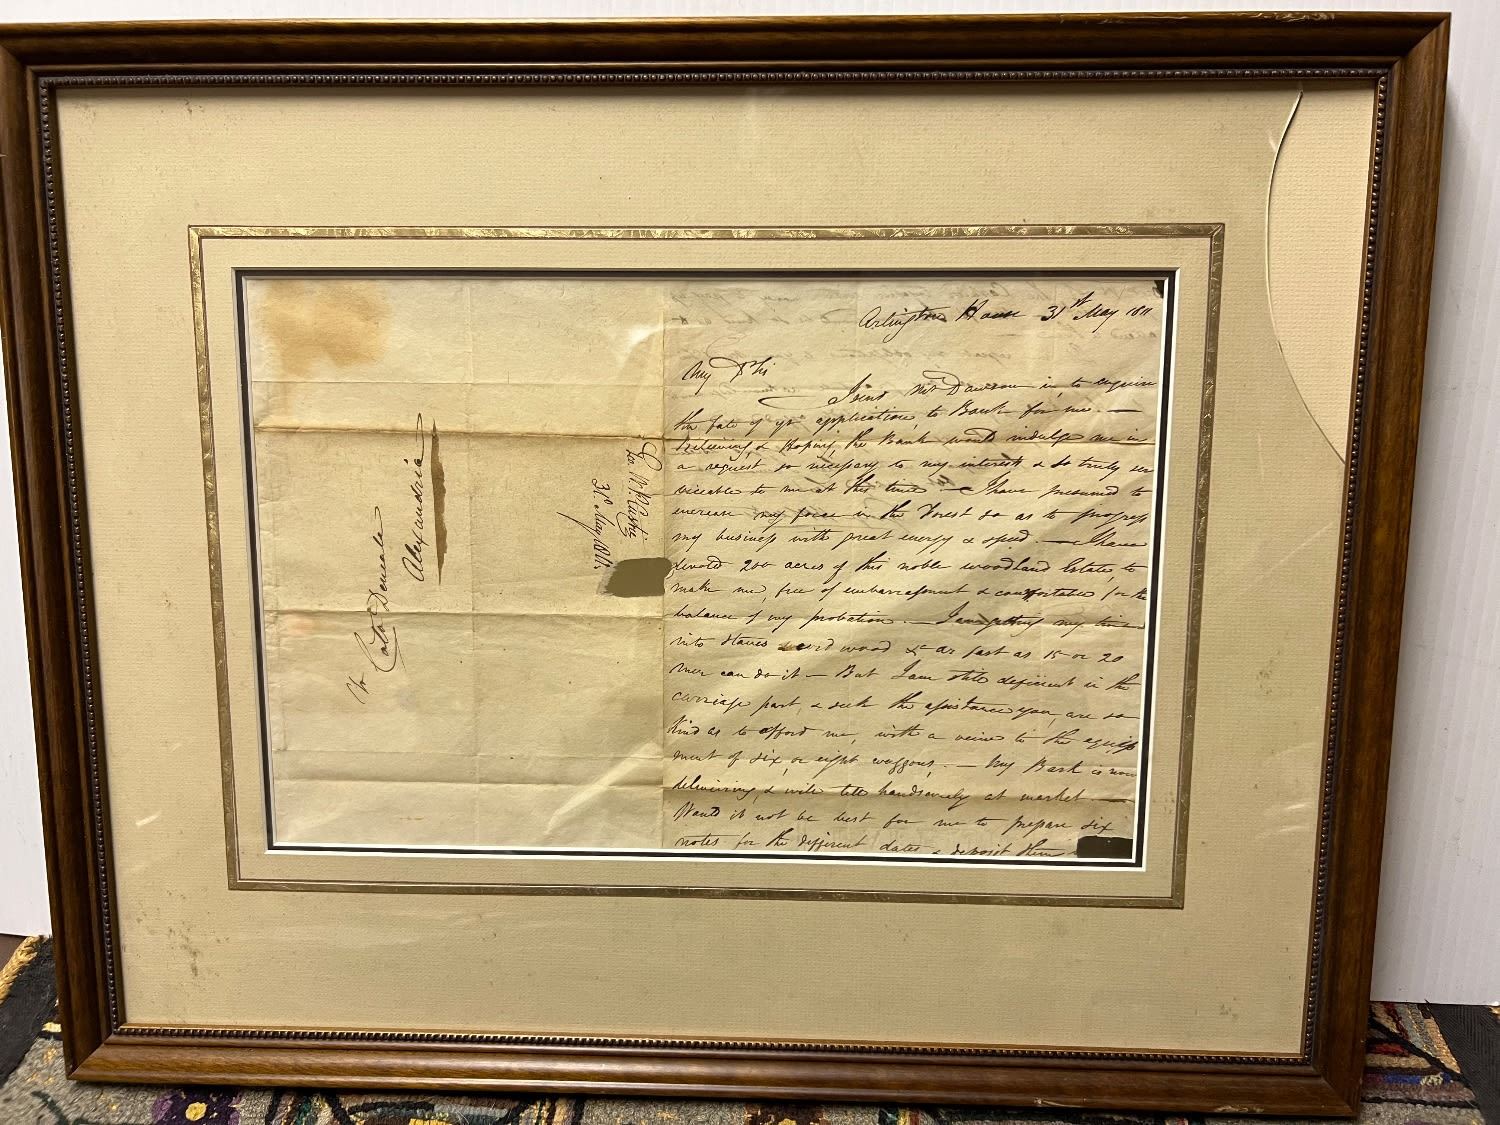 Arlington House 31st May 1811
My Dr Sir
I send Mr Dawson in, to enquire
the fate of yr application, to Bank for me. —
Believing, & hoping, the Bank would indulge me in
a request so necessary to my interests & so truly ser
viceable to me at this time — I have presumed to
increase my force in the Forest so as to progress
my business with great energy & speed. — I have
devoted 200 acres of this noble woodland Estate, to
make me, free of embarrassment & comfortable for the
balance of my probation. — I am getting my
into staves & cord wood &c as fast as 15 or 20
men can do it — But I am still deficient in the
carriage part, & seek the assistance you, are so
kind as to afford me, with a view to the equip
ment of six, or eight waggons, — My Bark is now
delivering, & will tell handsomely at market. —
Would it not be best for me to prepare six
notes for the different dates & deposit them
Geo. W. P. Custis
31st May 1811
Cato Deneale
Alexandria